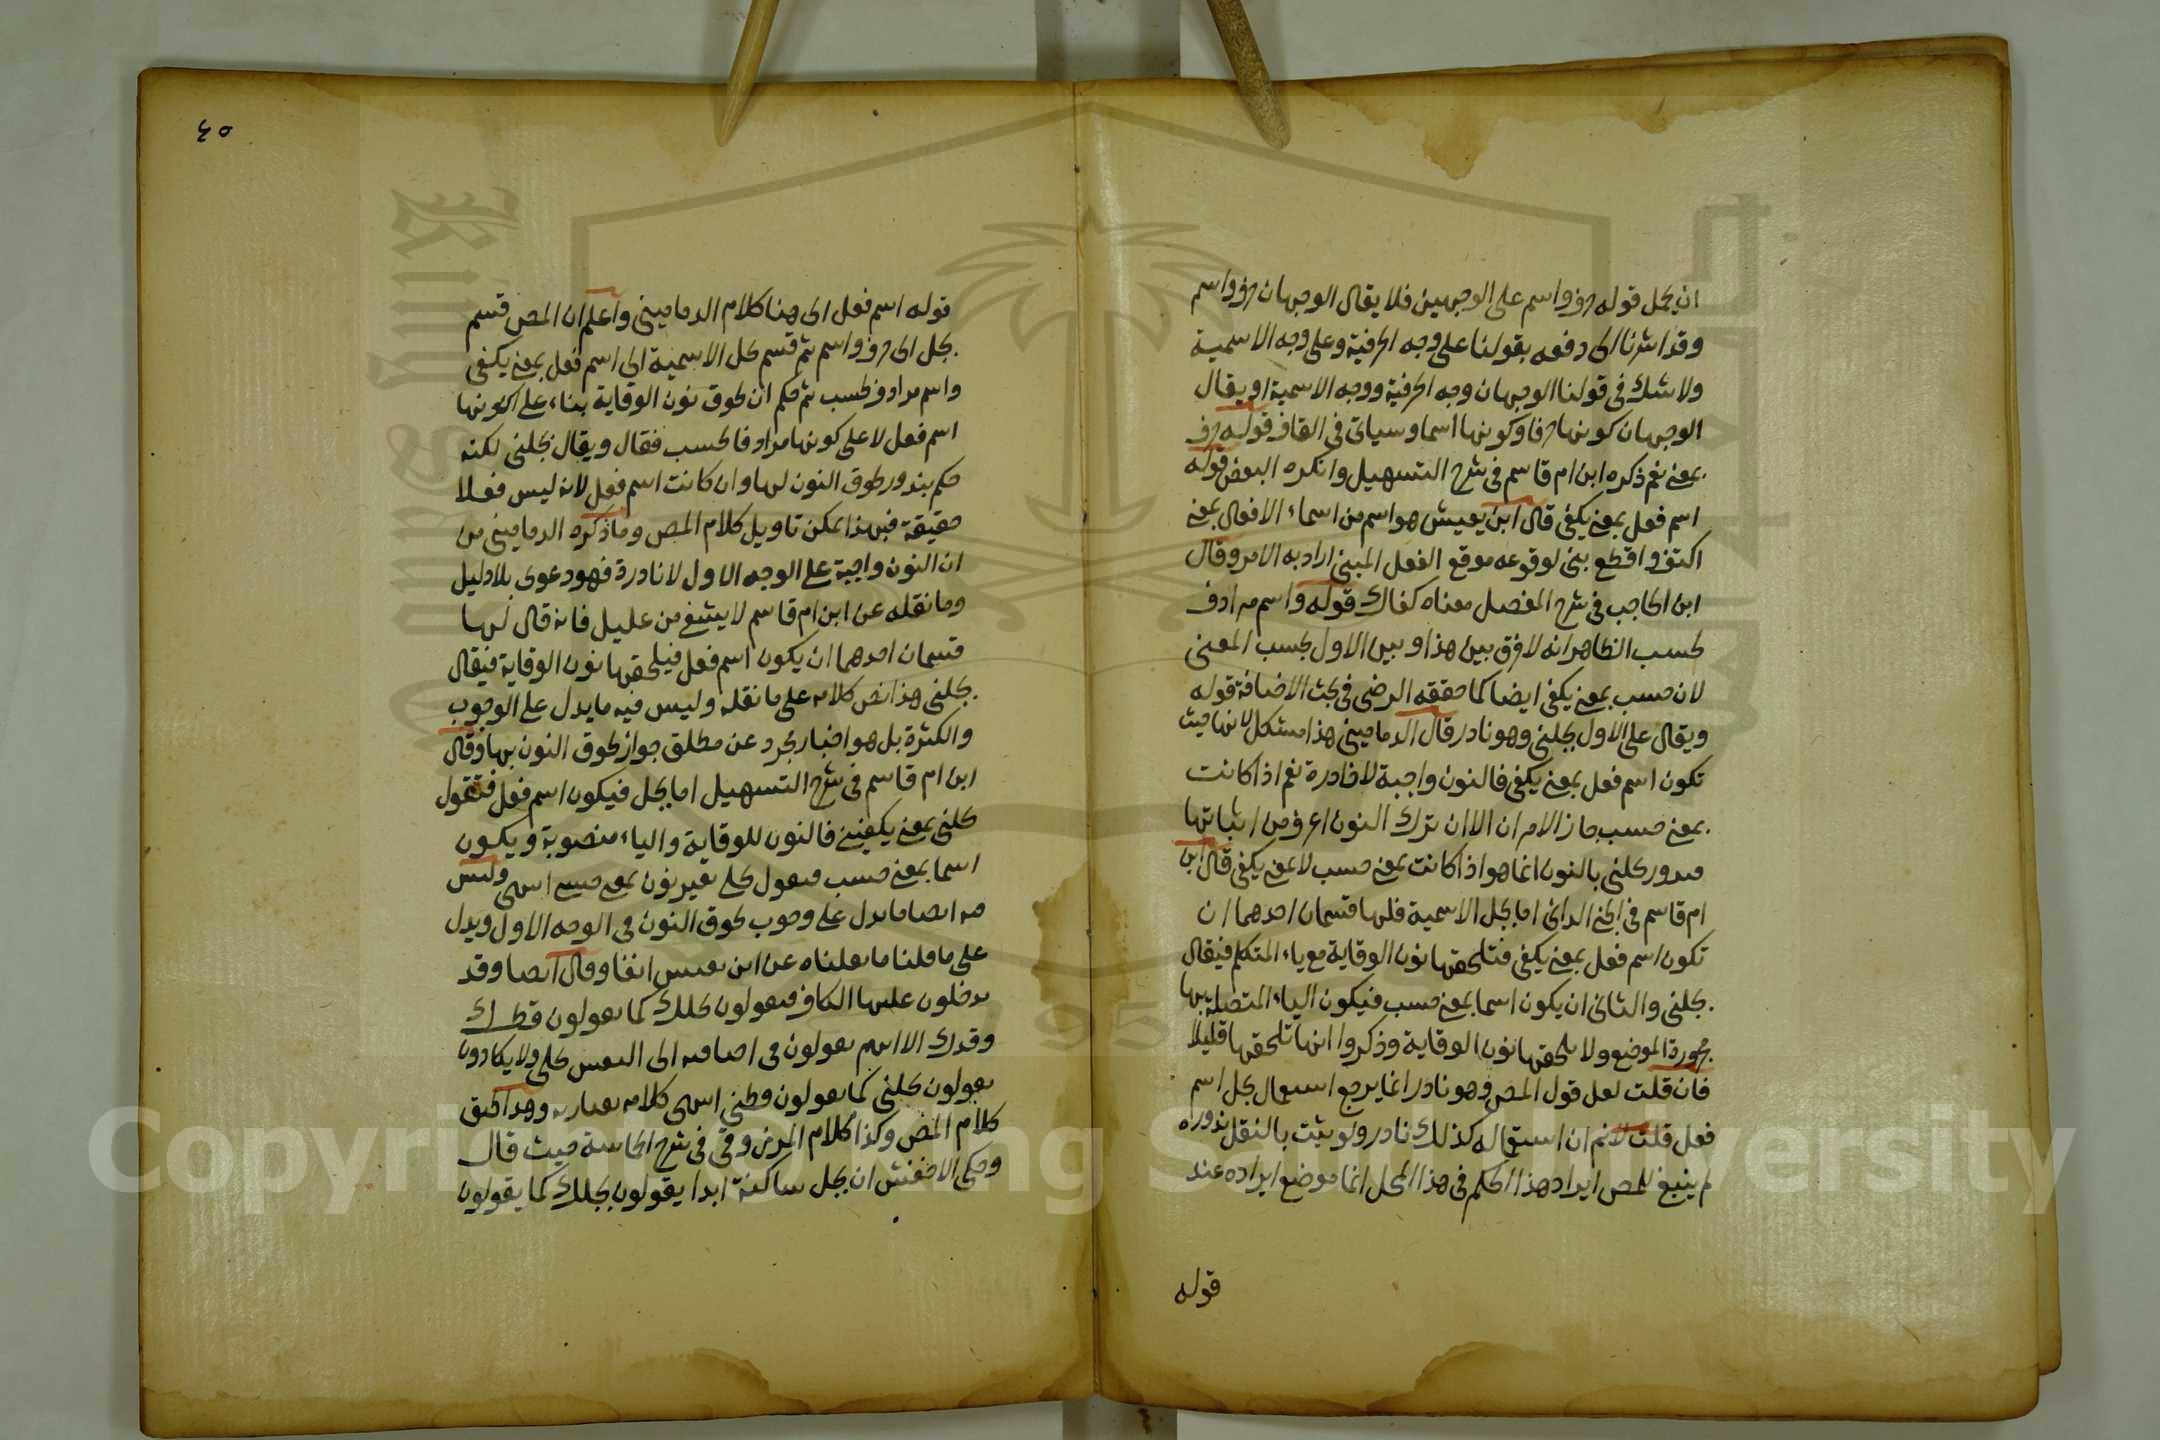 ان يجعل قوله حرف واسم على الوجهين فلا يقال الوجهان حرف واسم
وقد اشرنا الى دفعه بقولنا على وجه الحرفية وعلى وجه الاسمية
ولا شك فى قولنا الوجهان وجه الحرفية ووجه الاسمية او يقال
الوجهان كونها حرفا وكونها اسما وسياتى فى القاف قوله حرف
بمعنى نعم ذكره ابن ام قاسم فى شرح التسهيل وانكره البعض قوله
اسم فعل بمعنى يكفى قال ابن يعيش هو اسم من اسماء الافعال بمعنى
اكتف واقطع بنى لوقوعه موقع الفعل المبنى اراد به الامر وقال
ابن الحاجب فى شرح المفصل معناه كفاك قوله واسم مرادف
لحسب الظاهر انه لا فرق بين هذا وبين الاول بحسب المعنى
لان حسب بمعنى يكفى ايضا كما حققه الرضى فى بحث الاضافة قوله
ويقال على الاول بجلنى وهو نادر قال الدمامينى هذا مشكل لانها حيث
تكون اسم فعل بمعنى يكفى فالنون واجبة لا نادرة نعم اذا كانت
بمعنى حسب جاز الامران الا ان ترك النون اعرف من اثباتها
فندور بجلنى بالنون انما هو اذا كانت بمعنى حسب لا بمعنى يكفى قال ابن
ام قاسم فى الجنى الدانى اما بجل الاسمية فلها قسمان احدهما ان
تكون اسم فعل بمعنى يكفى فتلحقها نون الوقاية مع ياء المتكلم فيقال
بجلنى والثانى ان يكون اسما بمعنى حسب فيكون الياء المتصلة بها
مجرورة الموضع ولا تلحقها نون الوقاية وذكروا انها تلحقها قليلا
فان قلت لعل قول المص وهو نادر انما يرجع استعمال بجل اسم
فعل قلت لا نم ان استعماله كذلك نادر ولو ثبت بالنقل ندوره
لم ينبغ للمص ايراد هذا الحكم فى هذا المحل انما موضع ايراده عند
قوله
٤٥
قوله اسم فعل الى هنا كلام الدمامينى واعلم ان المص قسم
بجل الى حرف واسم ثم قسم بجل الاسمية الى اسم فعل بمعنى يكفى
واسم مرادف لحسب ثم حكم ان لحوق نون الوقاية بناء على كونها
اسم فعل لا على كونها مرادفا لحسب فقال ويقال بجلنى لكنه
حكم بندور لحوق النون لها وان كانت اسم فعل لانه ليس فعلا
حقيقة فبهذا يمكن تاويل كلام المص وما ذكره الدمامينى من
ان النون واجبة على الوجه الاول لا نادرة فهو دعوى بلا دليل
وما نقله عن ابن ام قاسم لا يشفى من عليل فانه قال لها
قسمان احدهما ان يكون اسم فعل فيلحقها نون الوقاية فيقال
بجلنى هذا نص كلامه على ما نقله وليس فيه ما يدل على الوجوب
والكثرة بل هو اخبار مجرد عن مطلق جواز لحوق النون بها وقال
ابن ام قاسم فى شرح التسهيل اما بجل فيكون اسم فعل فتقول
بجلنى بمعنى يكفينى فالنون للوقاية والياء منصوبة ويكون
اسما بمعنى حسب فيقول بجلى بغير نون بمعنى حسبى انتهى وليس
فيه ايضا ما يدل على وجوب لحوق النون فى الوجه الاول ويدل
على ما قلنا ما نقلناه عن ابن يعيش انفا وقال ايضا وقد
يدخلون عليها الكاف فيقولون بجلك كما يقولون قطك
وقدك الا انهم يقولون فى اضافته الى النفس بجلى ولا يكادون
يقولون بجلنى كما يقولون قطنى انتهى كلامه بعبارته وهذا يحقق
كلام المص وكذا كلام المرزوقى فى شرح الحماسة حيث قال
وحكى الاخفش ان بجل ساكنة ابدا يقولون بجلك كما يقولون